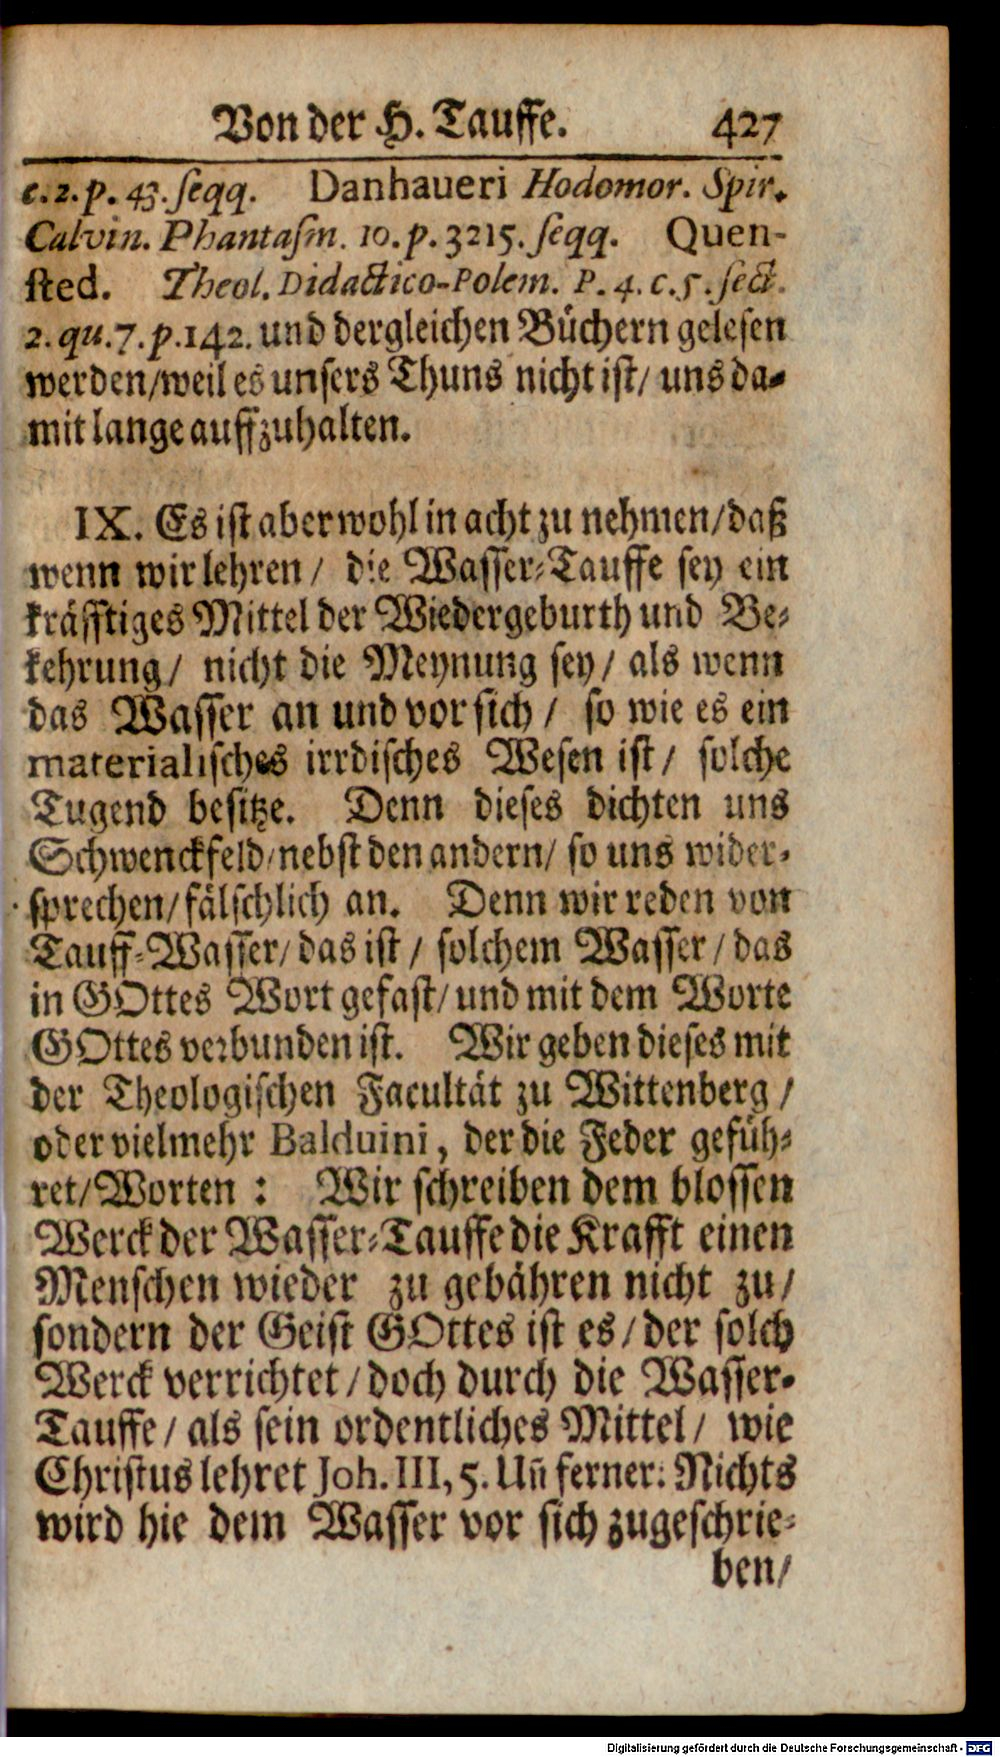 Von der H. Tauffe. 427
c. 2. p. 43. ſeqq. Danhaueri Hodomor. Spir.
Calvin. Phantaſm. 10. p. 3215. ſeqq. Quen-
ſted. Theol. Didactico-Polem. P. 4. c. 5. ſect.
2. qu. 7. p. 142. und dergleichen Buͤchern geleſen
werden/ weil es unſers Thuns nicht iſt/ uns da-
mit lange auffzuhalten.
IX. Es iſt aber wohl in acht zu nehmen/ daß
wenn wir lehren/ die Waſſer-Tauffe ſey ein
kraͤfftiges Mittel der Wiedergeburth und Be-
kehrung/ nicht die Meynung ſey/ als wenn
das Waſſer an und vor ſich/ ſo wie es ein
materialiſches irrdiſches Weſen iſt/ ſolche
Tugend beſitze. Denn dieſes dichten uns
Schwenckfeld/ nebſt den andern/ ſo uns wider-
ſprechen/ faͤlſchlich an. Denn wir reden von
Tauff-Waſſer/ das iſt/ ſolchem Waſſer/ das
in GOttes Wort gefaſt/ und mit dem Worte
GOttes verbunden iſt. Wir geben dieſes mit
der Theologiſchen Facultaͤt zu Wittenberg/
oder vielmehr Balduini, der die Feder gefuͤh-
ret/ Worten: Wir ſchreiben dem bloſſen
Werck der Waſſer-Tauffe die Krafft einen
Menſchen wieder zu gebaͤhren nicht zu/
ſondern der Geiſt GOttes iſt es/ der ſolch
Werck verrichtet/ doch durch die Waſſer-
Tauffe/ als ſein ordentliches Mittel/ wie
Chriſtus lehret Joh. III, 5. Un̄ ferner: Nichts
wird hie dem Waſſer vor ſich zugeſchrie-
ben/
Digitalisierung gefördert durch die Deutsche Forschungsgemeinschaft - DFG